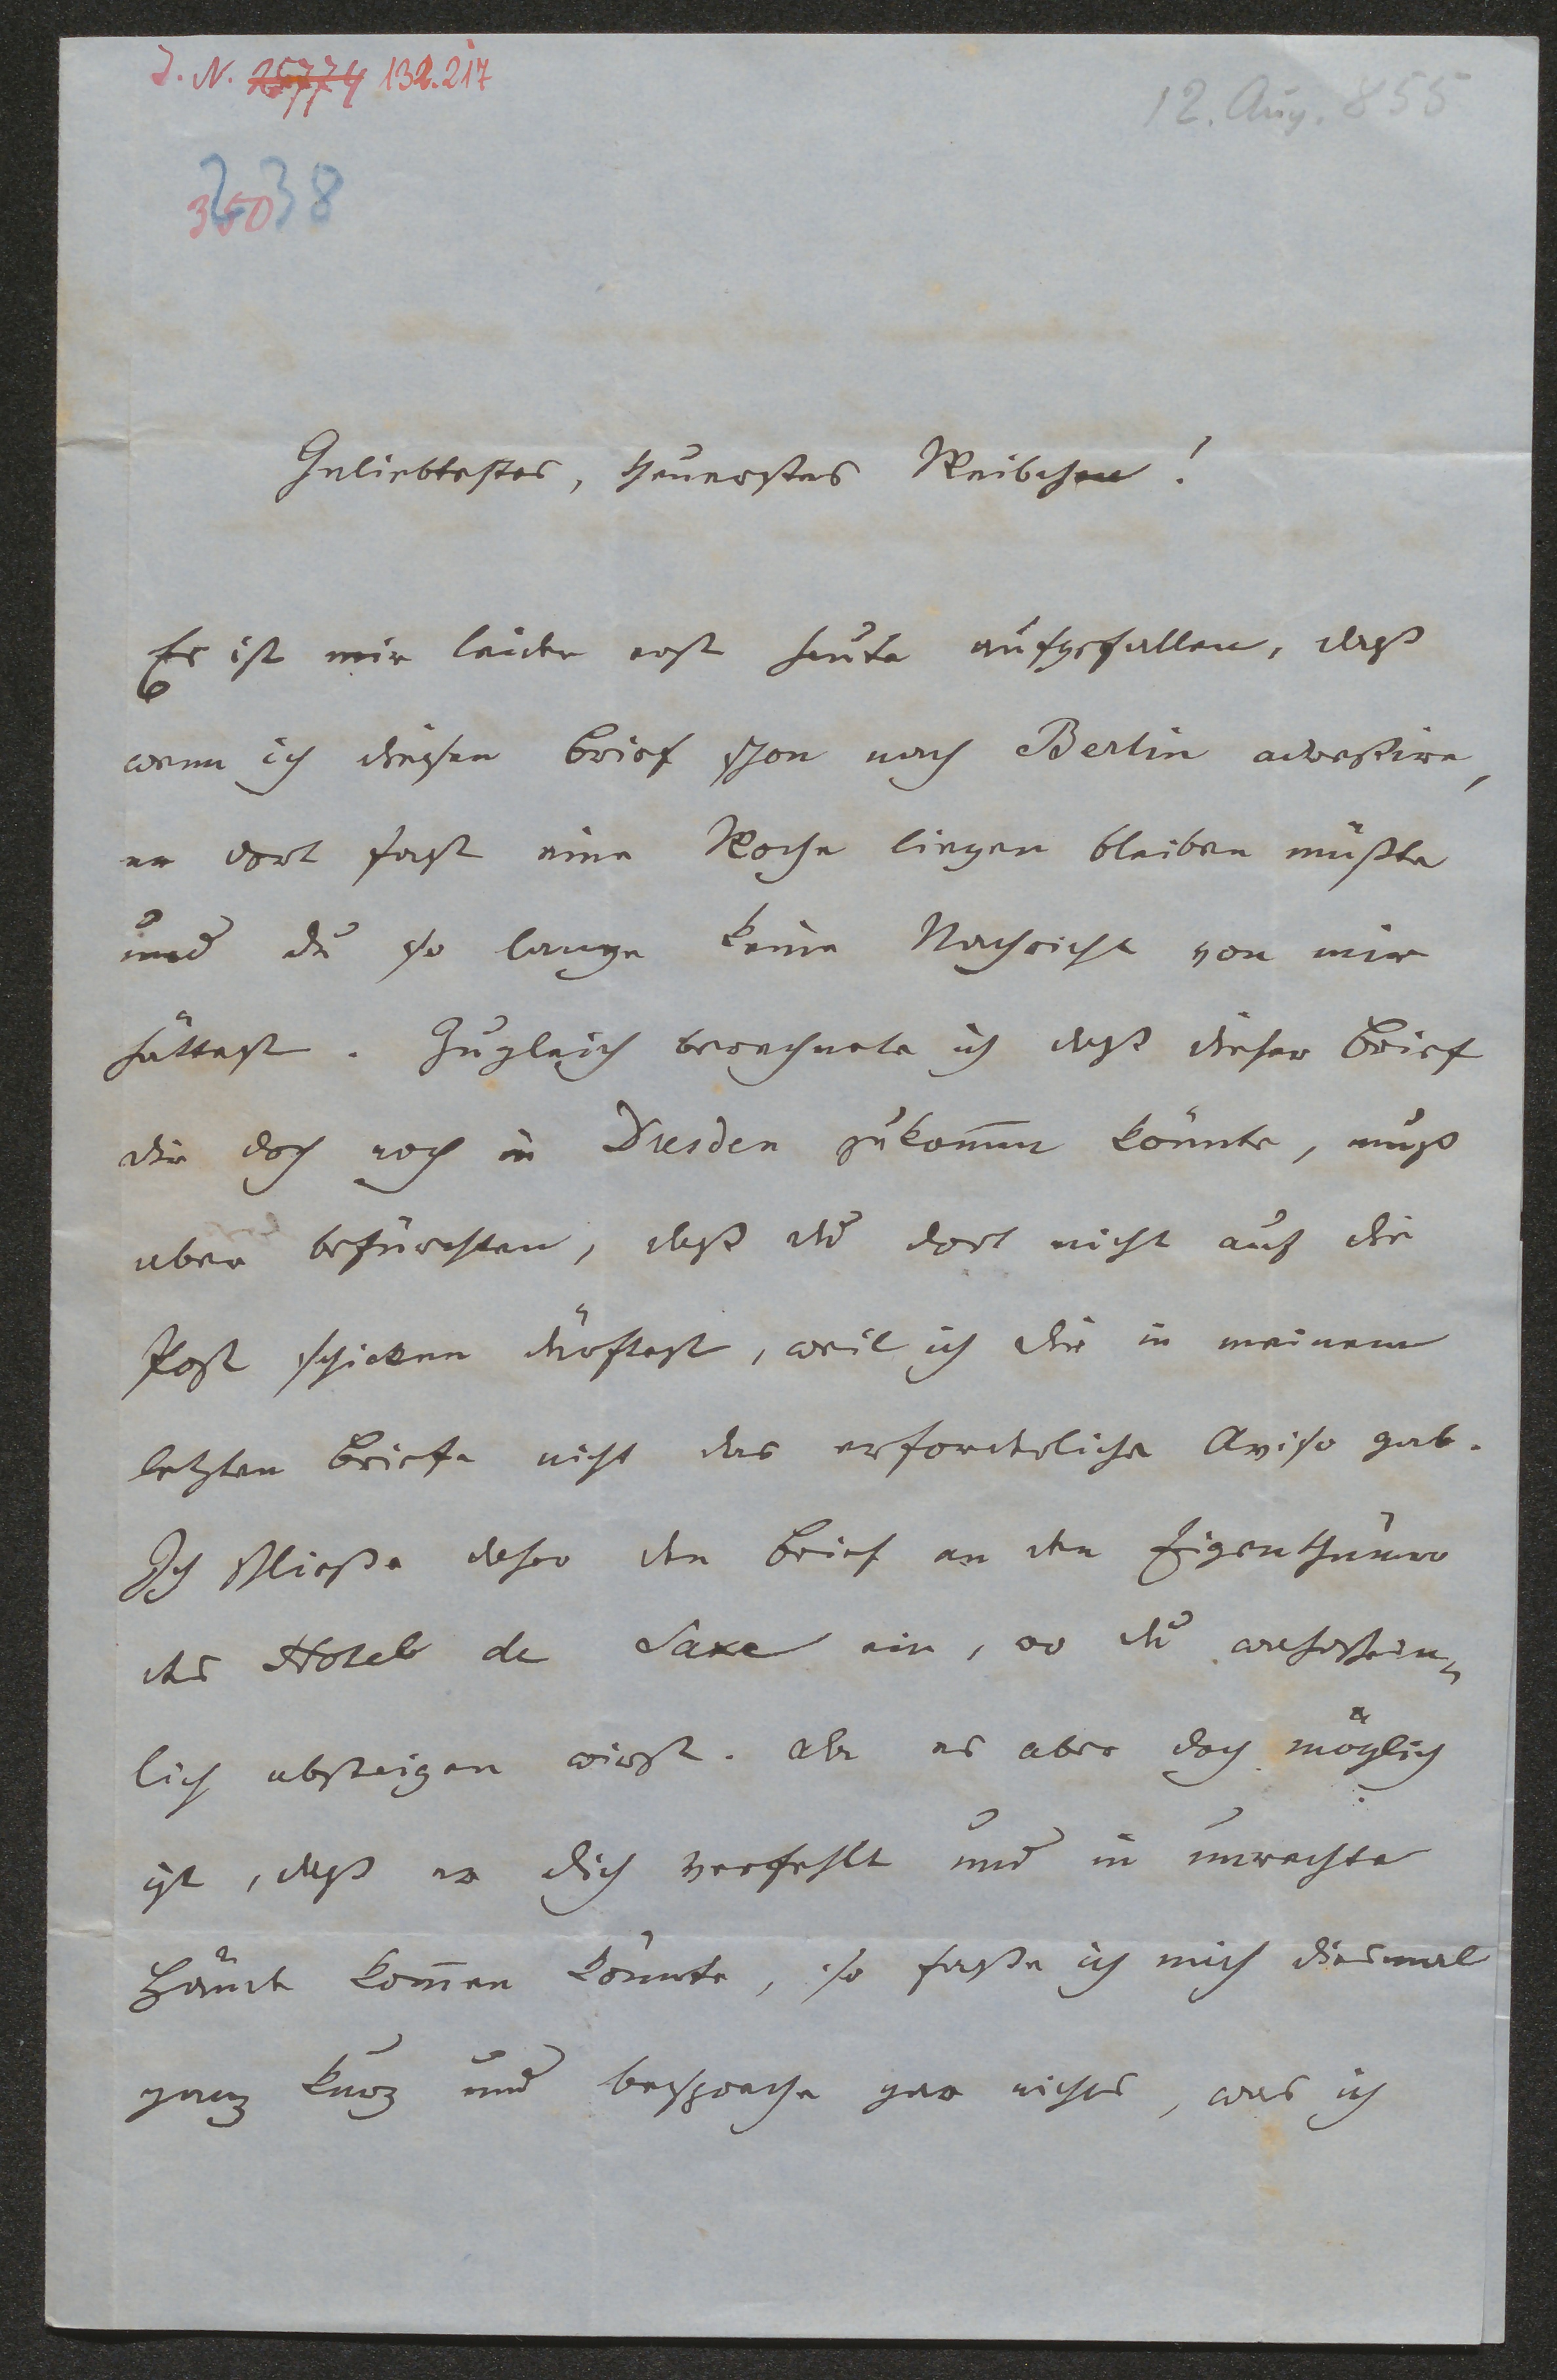 J. N. 25774 132.217
12. Aug. 855
238
350
Geliebtestes, theuerstes Weibchen!
Es ist mir leider erst heute aufgefallen, daß
wenn ich diesen Brief schon nach Berlin adressire,
er dort fast eine Woche liegen bleiben müßte
und du so lange keine Nachricht von mir
hättest. Zugleich berechnete ich daß dieser Brief
dir doch noch in Dresden zukommen könnte, muß
aber befürchten, daß du dort nicht auf die
Post schicken dürftest, weil ich dir in meinem
letzten Briefe nicht das erforderliche Aviso gab.
Ich schließe daher den Brief an den Eigenthümer
des Hotels de Saxe ein, wo du wahrschein-
lich absteigen wirst. Da es aber doch möglich
ist, daß er dich verfehlt und in unrechte
Hände kommen könnte, so fasse ich mich diesmal
ganz kurz und bespreche gar nichts, was ich